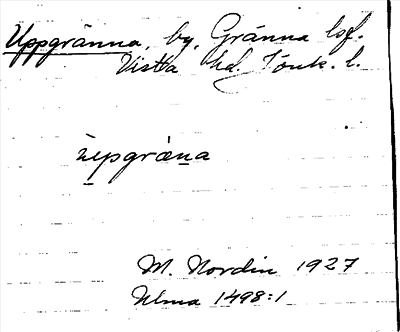 Uppgränna, by, Gränna lsf.
Vista hd. Jönk. l.
ùpgræna
M. Nordin 1927
Ulma 1498:1